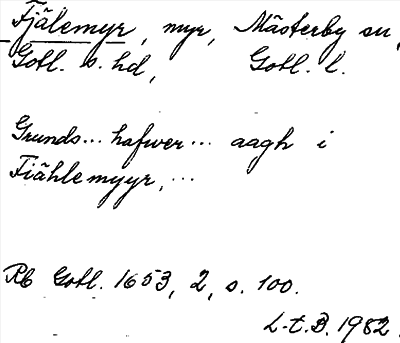 Fjälemyr, myr, Mästerby sn,
Gotl. s. hd, Gotl. l.
Grunds... hafwer... aagh i
Fiählemyyr,...
Rb Gotl. 1653, 2, s. 100.
L-t.B. 1982.